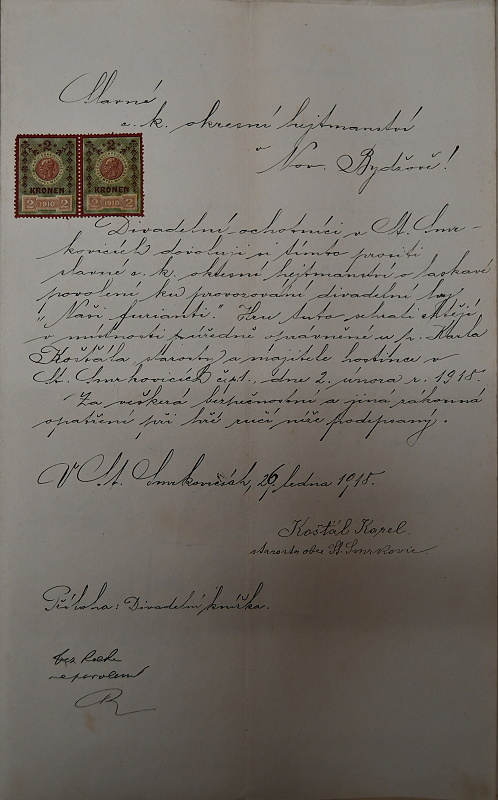 Slavné
c. k. okresní hejtmanství
v
Nov. Bydžově!
2 2
KRONEN KRONEN
2 1910 2 2 1910 2
Divadelní ochotníci v St. Smr-
kovicích dovolují si tímto prositi
slavné c. k. okresní hejtmanství o laskavé
povolení ku provozování divadelní hry
"Naši furianti." Hru tuto sehráti chtějí
v místnosti úředně oprávněné u p. Karla
Košťála starosty a majitele hostince v
St. Smrkovicích čp. 1., dne 2. února r. 1918.
Za veškerá bezpečnostní a jiná zákonná
opatření při hře ručí níže podepsaný.
V St. Smrkovicích, 26. ledna 1918.
Košťál Karel
starosta obce St. Smrkovic
Příloha: Divadelní knížka.
bez
nepovolení